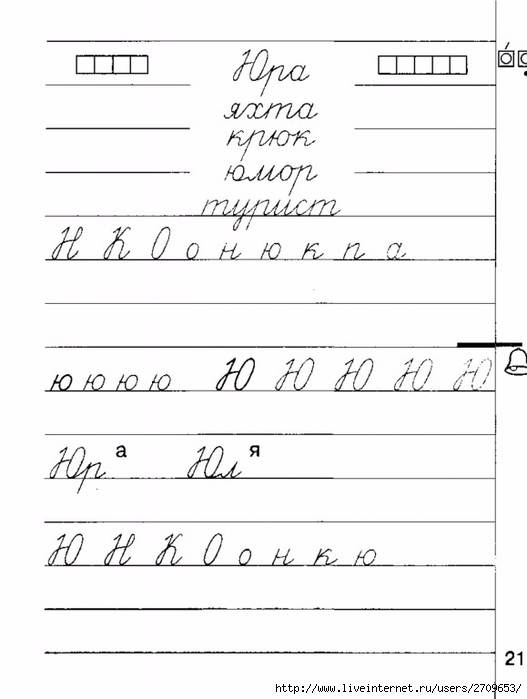 Юра
яхта
крюк
юмор
турист
Н К О о н ю к п а
ю ю ю ю Ю Ю Ю Ю Ю
Юр а Юл я
Ю Н К О о н к ю
21
http://www.liveinternet.ru/users/2709653/